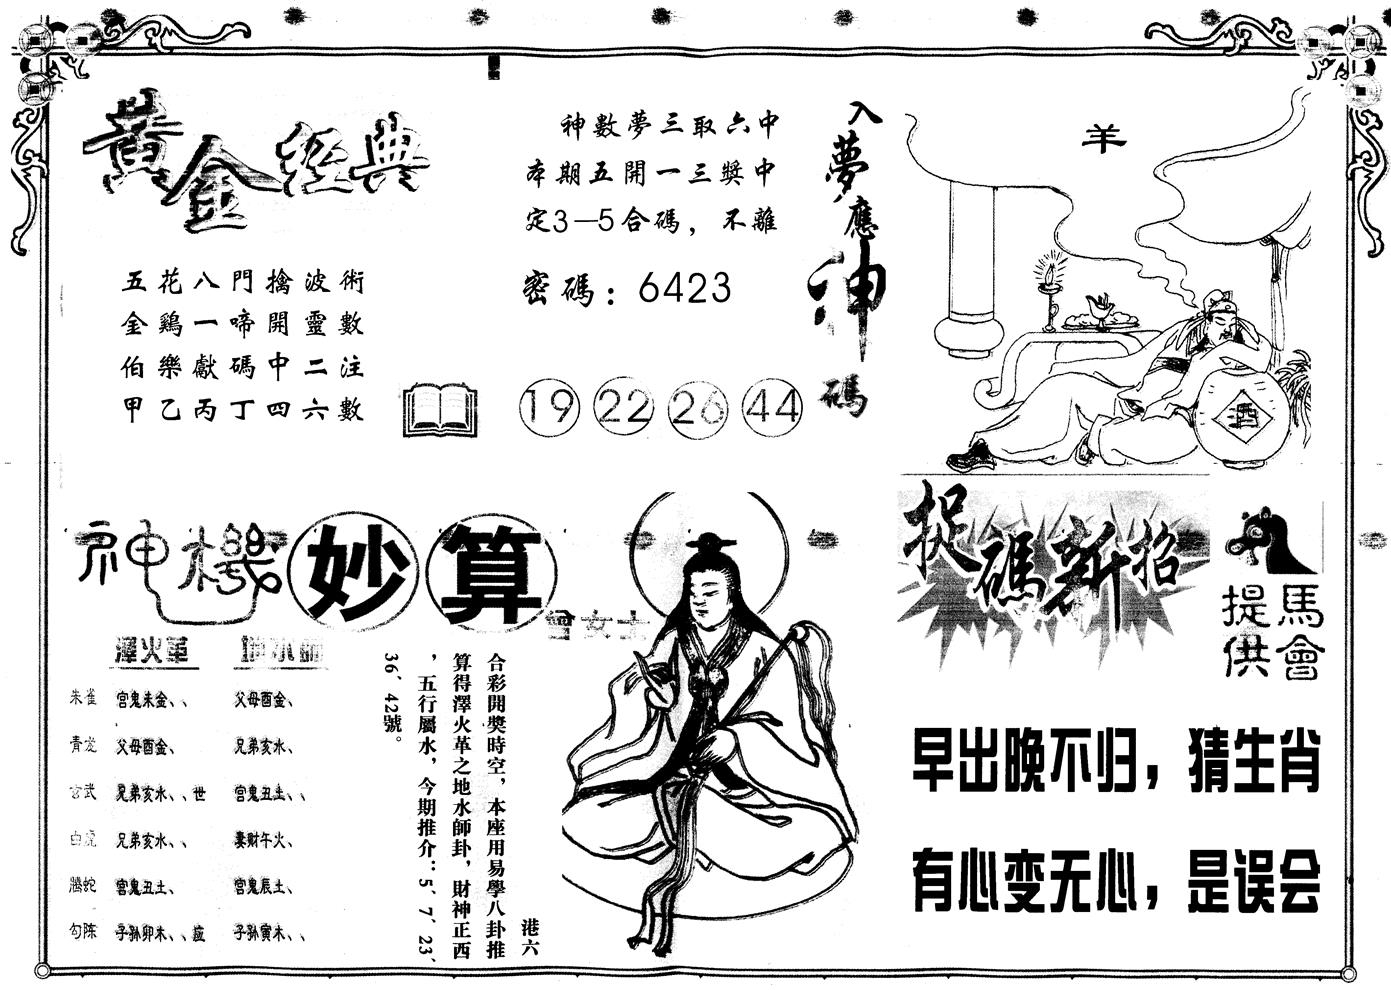 黃金經典
五花八門擒波術
金鷄一啼開靈數
伯樂獻碼中二注
甲乙丙丁四六數
神數夢三取六中
本期五開一三獎中
定3—5合碼，不離
密碼：6423
19 22 26 44
入夢應神碼
羊
酒
神機妙算
曾女士
澤火革 地水師
朱雀 官鬼未金、、 父母酉金、
青龙 父母酉金、 兄弟亥水、
玄武 兄弟亥水、、世 官鬼丑土、、
白虎 兄弟亥水、、 妻财午火、
騰蛇 官鬼丑土、 官鬼辰土、
勾陈 子孙卯木、、应 子孙寅木、、
港六
合彩開獎時空，本座用易學八卦推
算得澤火革之地水師卦，財神正西
，五行屬水，今期推介：5、7、23、
36、42號。
捉碼新招
馬會
提供
早出晚不归，猜生肖
有心变无心，是误会